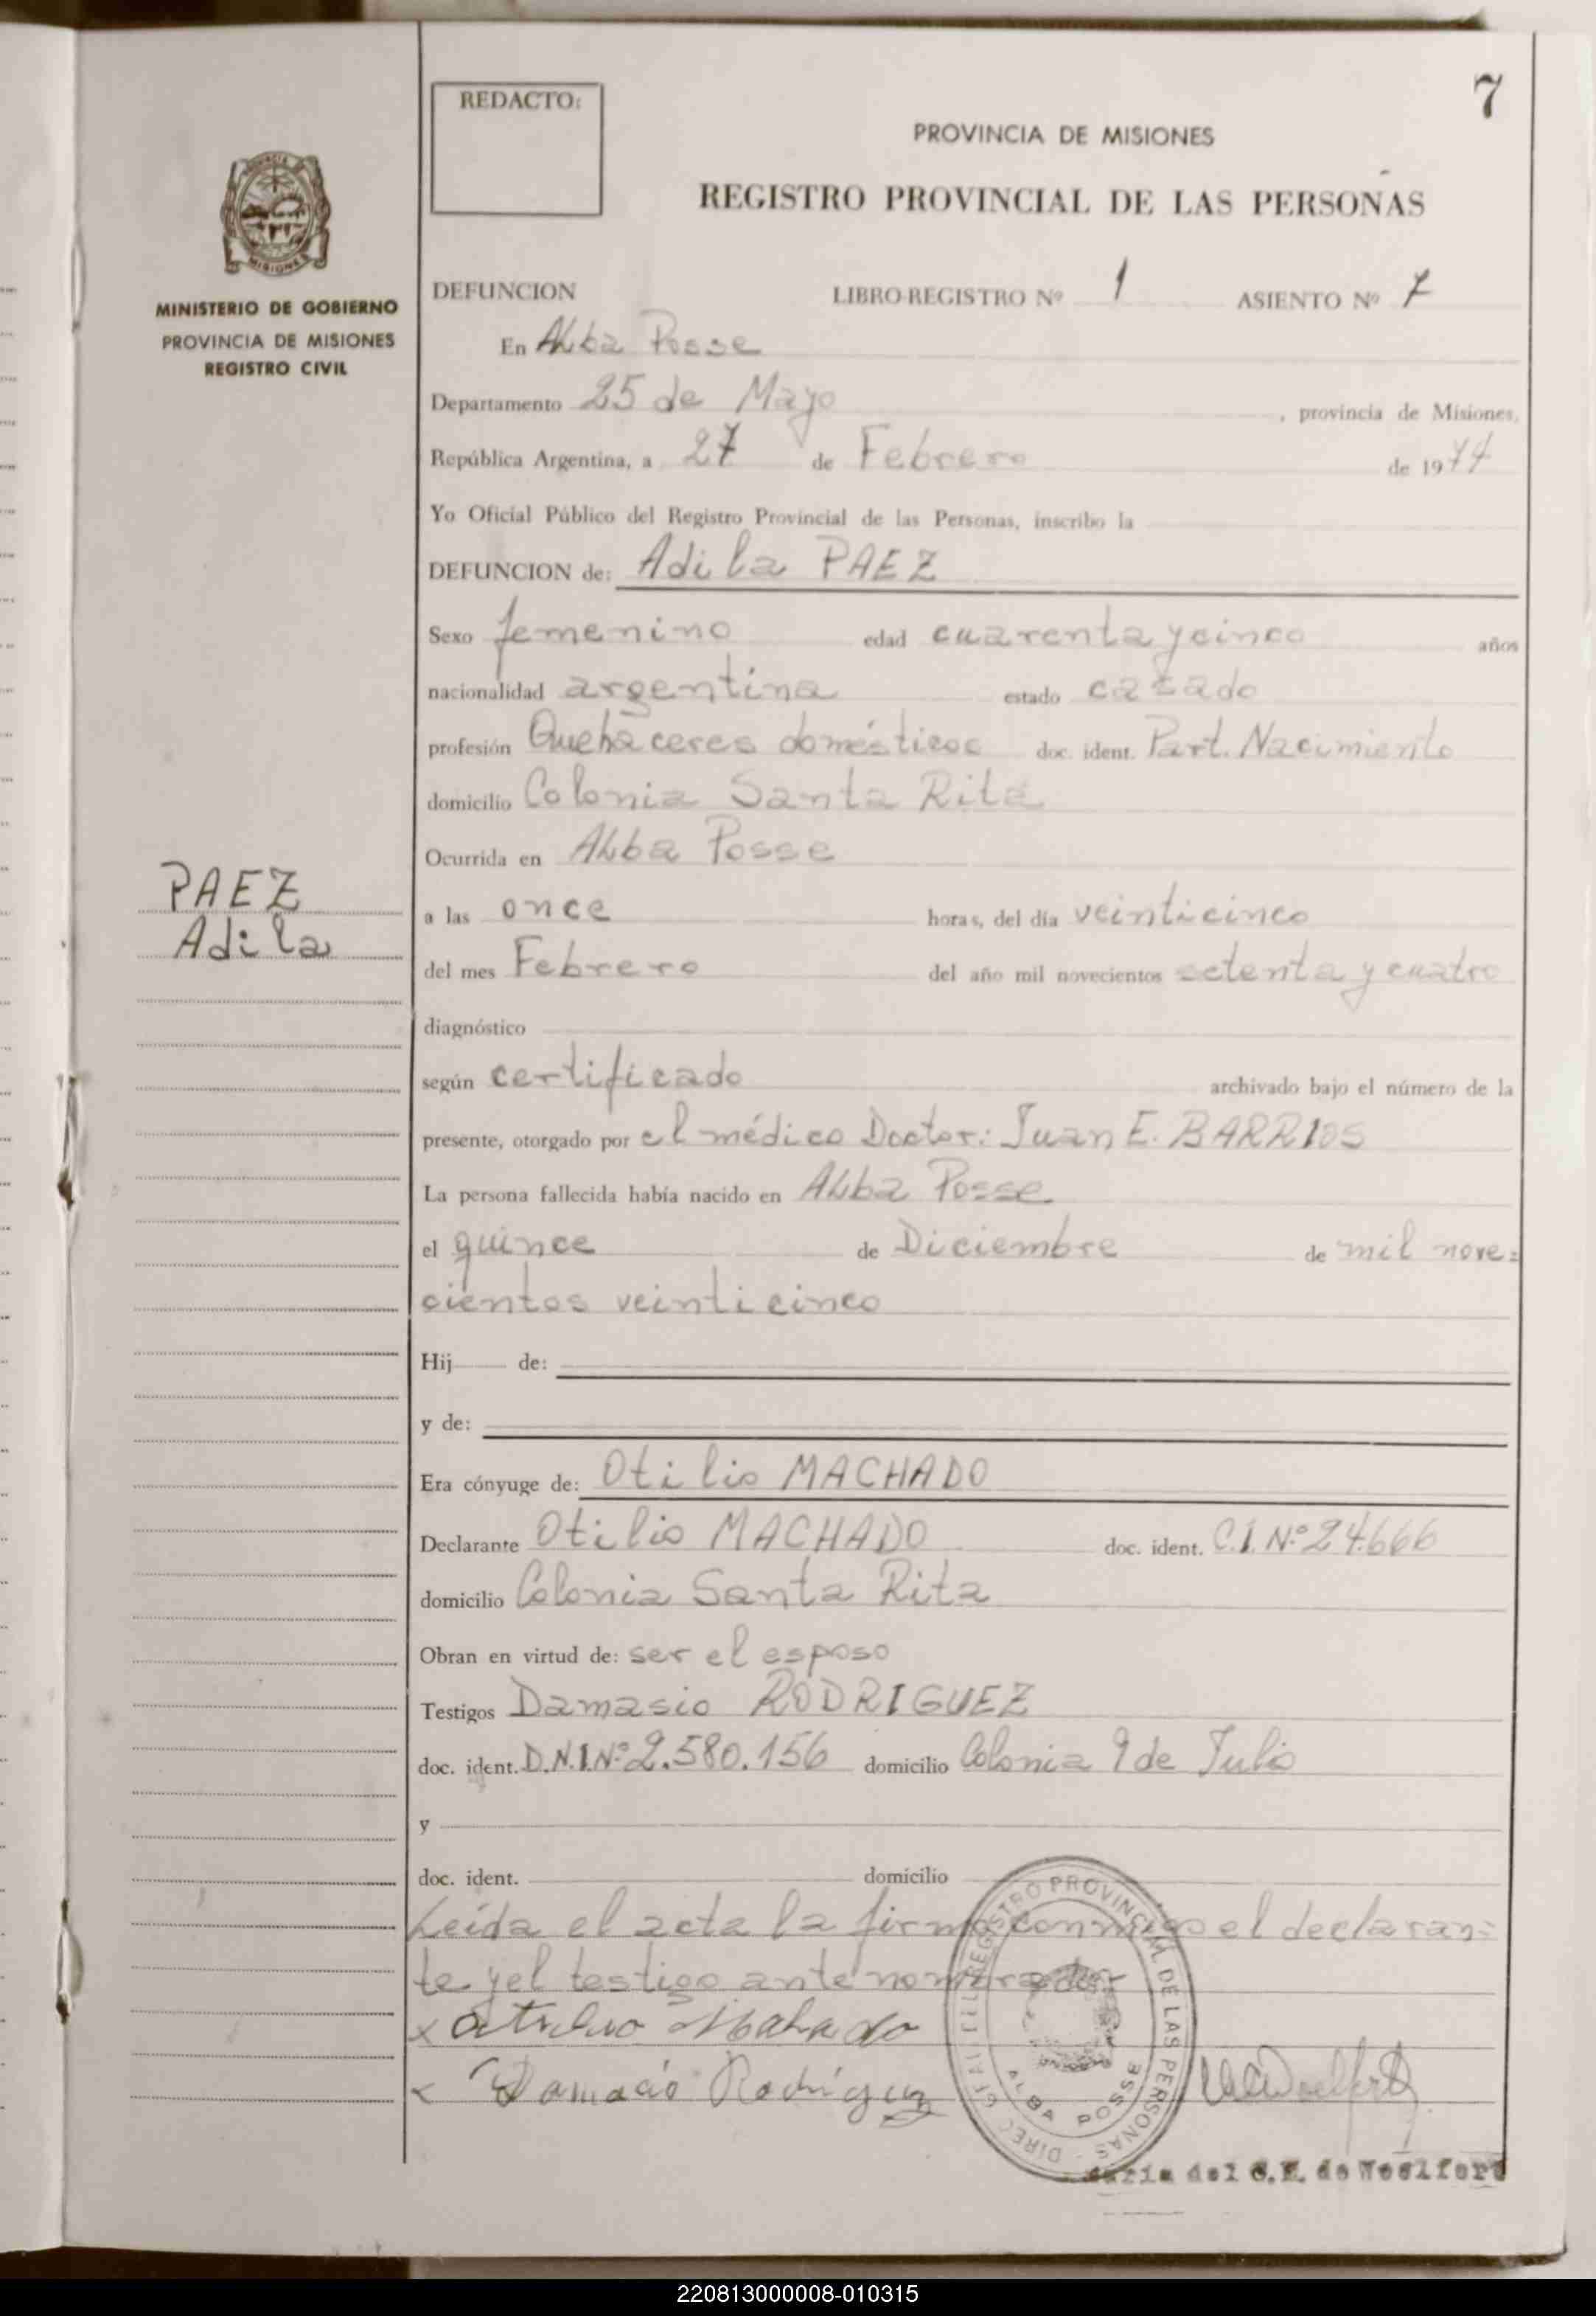 7
REDACTO:
PROVINCIA DE MISIONES
REGISTRO PROVINCIAL DE LAS PERSONAS
MINISTERIO DE GOBIERNO
PROVINCIA DE MISIONES
REGISTRO CIVIL
DEFUNCION LIBRO-REGISTRO Nº 1 ASIENTO Nº 7
En Alba Posse
Departamento 25 de Mayo, provincia de Misiones,
República Argentina, a 27 de Febrero de 1974
Yo Oficial Público del Registro Provincial de las Personas, inscribo la
DEFUNCION de: Adila PAEZ
Sexo femenino edad cuarenta y cinco años
nacionalidad argentina estado casado
profesión Quehaceres domésticos doc. ident. Part. Nacimiento
domicilio Colonia Santa Rita
Ocurrida en Alba Posse
PAEZ
Adila
a las once horas, del día veinticinco
del mes Febrero del año mil novecientos setenta y cuatro
diagnóstico
según certificado archivado bajo el número de la
presente, otorgado por el médico Doctor: Juan E. BARRIOS
La persona fallecida había nacido en Alba Posse
el quince de Diciembre de mil nove=
cientos veinticinco
Hij de:
y de:
Era cónyuge de: Otilio MACHADO
Declarante Otilio MACHADO doc. ident. C.I. Nº 24.666
domicilio Colonia Santa Rita
Obran en virtud de: ser el esposo
Testigos Damasio RODRIGUEZ
doc. ident. D.N.I. Nº 2.580.156 domicilio Colonia 9 de Julio
y
doc. ident. domicilio
Leída el acta la firma conmigo el declaran=
te y el testigo antenombrado
x Otilio Mahado
x Damacio Rodriguez
REGISTRO PROVINCIAL DE LAS PERSONAS
ALBA POSSE
MISIONES
del C.E. de Woelfert
220813000008-010315